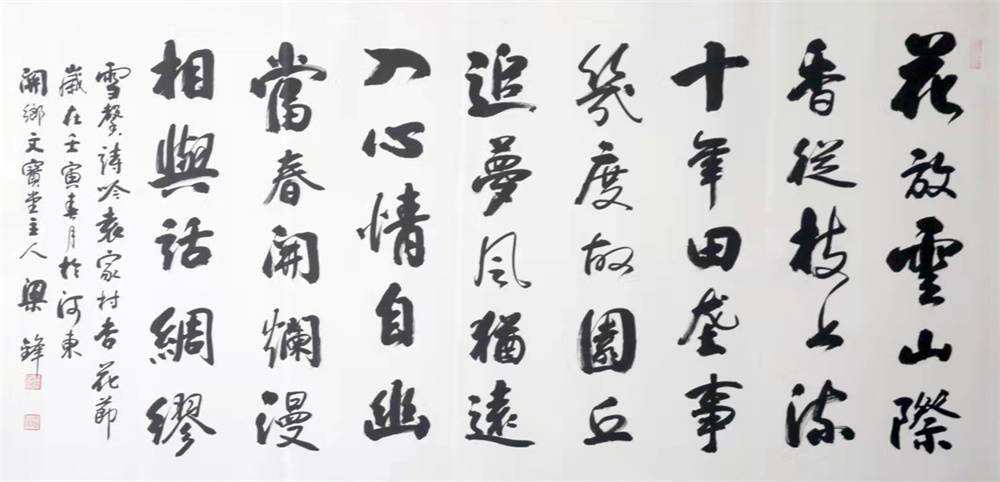 花放雲山際
香從枝上流
十年田壟事
幾度故園丘
追夢風猶遠
入心情自幽
當春開爛漫
相與話綢繆
雪馨詩吟袁家村杏花節
歲在壬寅春月於河東
開鄉文寶堂主人 梁鋒